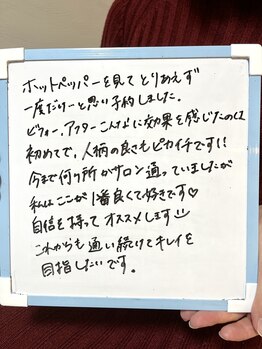 ホットペッパーを見てとりあえず
一度だけーと思い予約しました。
ビフォー、アフターこんなに効果を感じたのは
初めてで、人柄の良さもピカイチです!!
今まで何ヶ所かサロン通っていましたが
私はここが1番良くて好きです♡
自信を持ってオススメします
これからも通い続けてキレイを
目指したいです。